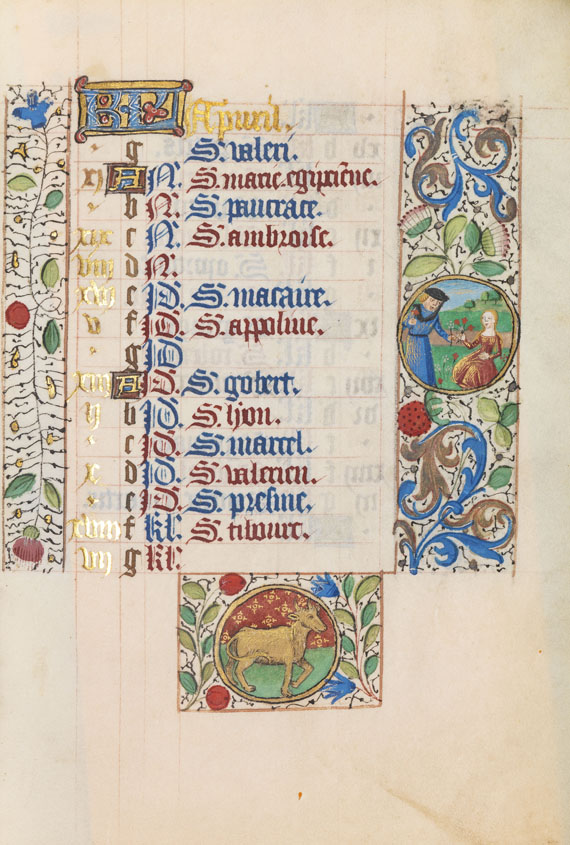 KL Apuril.
g S. valeri.
xj A N. S. marie egipciene.
b N. S. pancrace.
xix c N. S. ambroise.
viij d N.
xvj e ID. S. macaire.
v f ID. S. appoline.
g ID
xiij A ID. S. gobert.
ij b ID. S. lyon.
c ID. S. marcel.
x d ID. S. valerien.
e ID. S. presine.
xviij f kl. S. tiburt.
vij g kl.